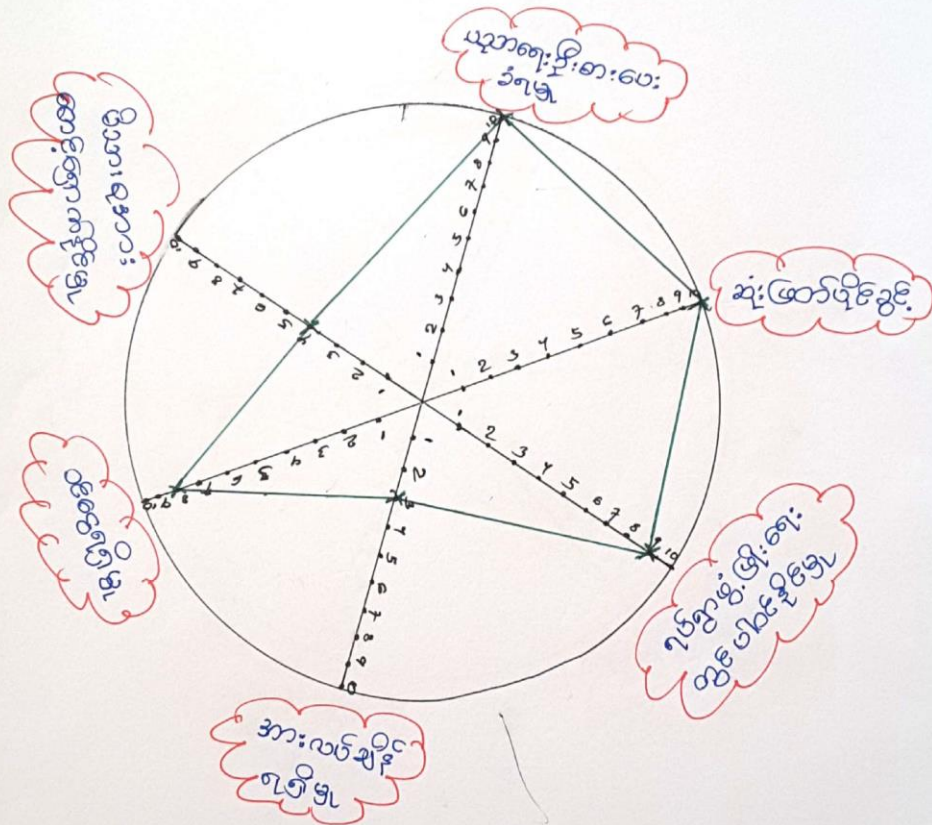 ပညာရေးဦးစားပေး
ခံရမှု
ဆုံးဖြတ်ပိုင်ခွင့်
ရပ်ရွာဖွံ့ဖြိုးရေး
တွင် ပါဝင်နိုင်မှု
အားလပ်ချိန်
ရရှိမှု
ဝင်ငွေရရှိမှု
မိသားစုအား
ထောက်ပံ့နိုင်မှု
1 2 3 4 5 6 7 8 9 10
1 2 3 4 5 6 7 8 9 10
1 2 3 4 5 6 7 8 9 10
1 2 3 4 5 6 7 8 9 10
1 2 3 4 5 6 7 8 9 10
1 2 3 4 5 6 7 8 9 10